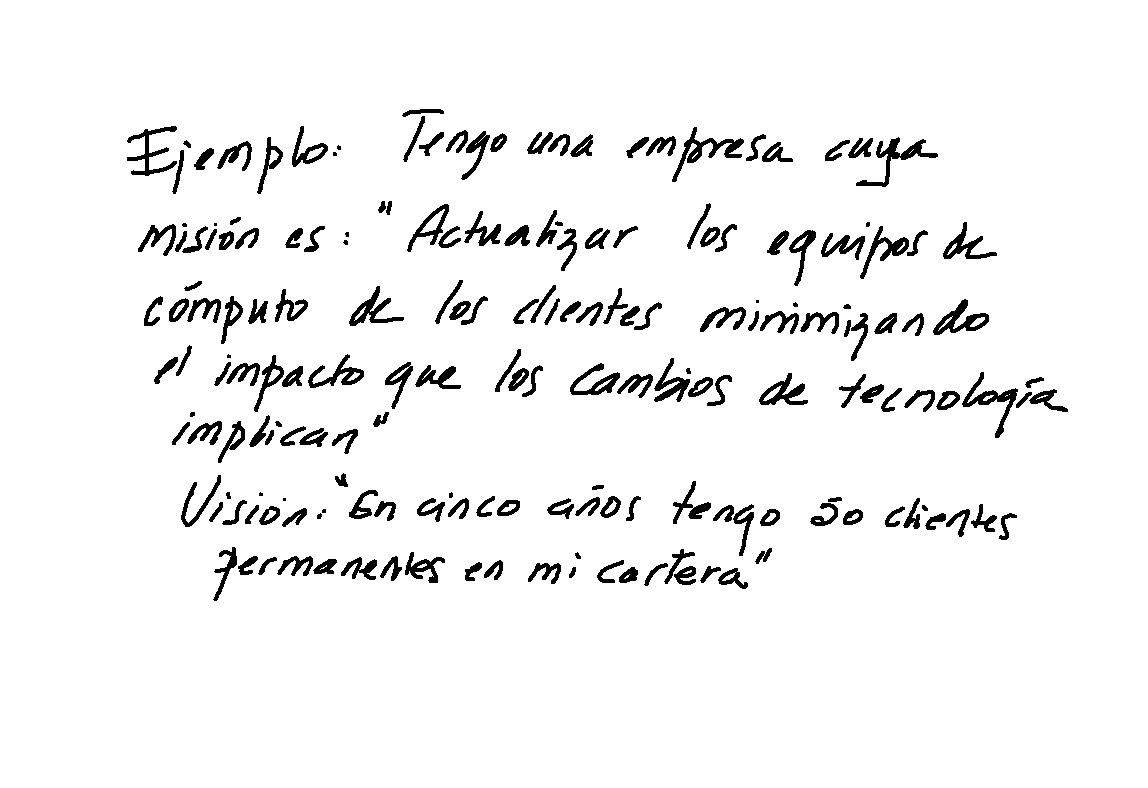 Ejemplo: Tengo una empresa cuya
misión es: "Actualizar los equipos de
cómputo de los clientes minimizando
el impacto que los cambios de tecnología
implican"
Visión: "En cinco años tengo 50 clientes
permanentes en mi cartera"